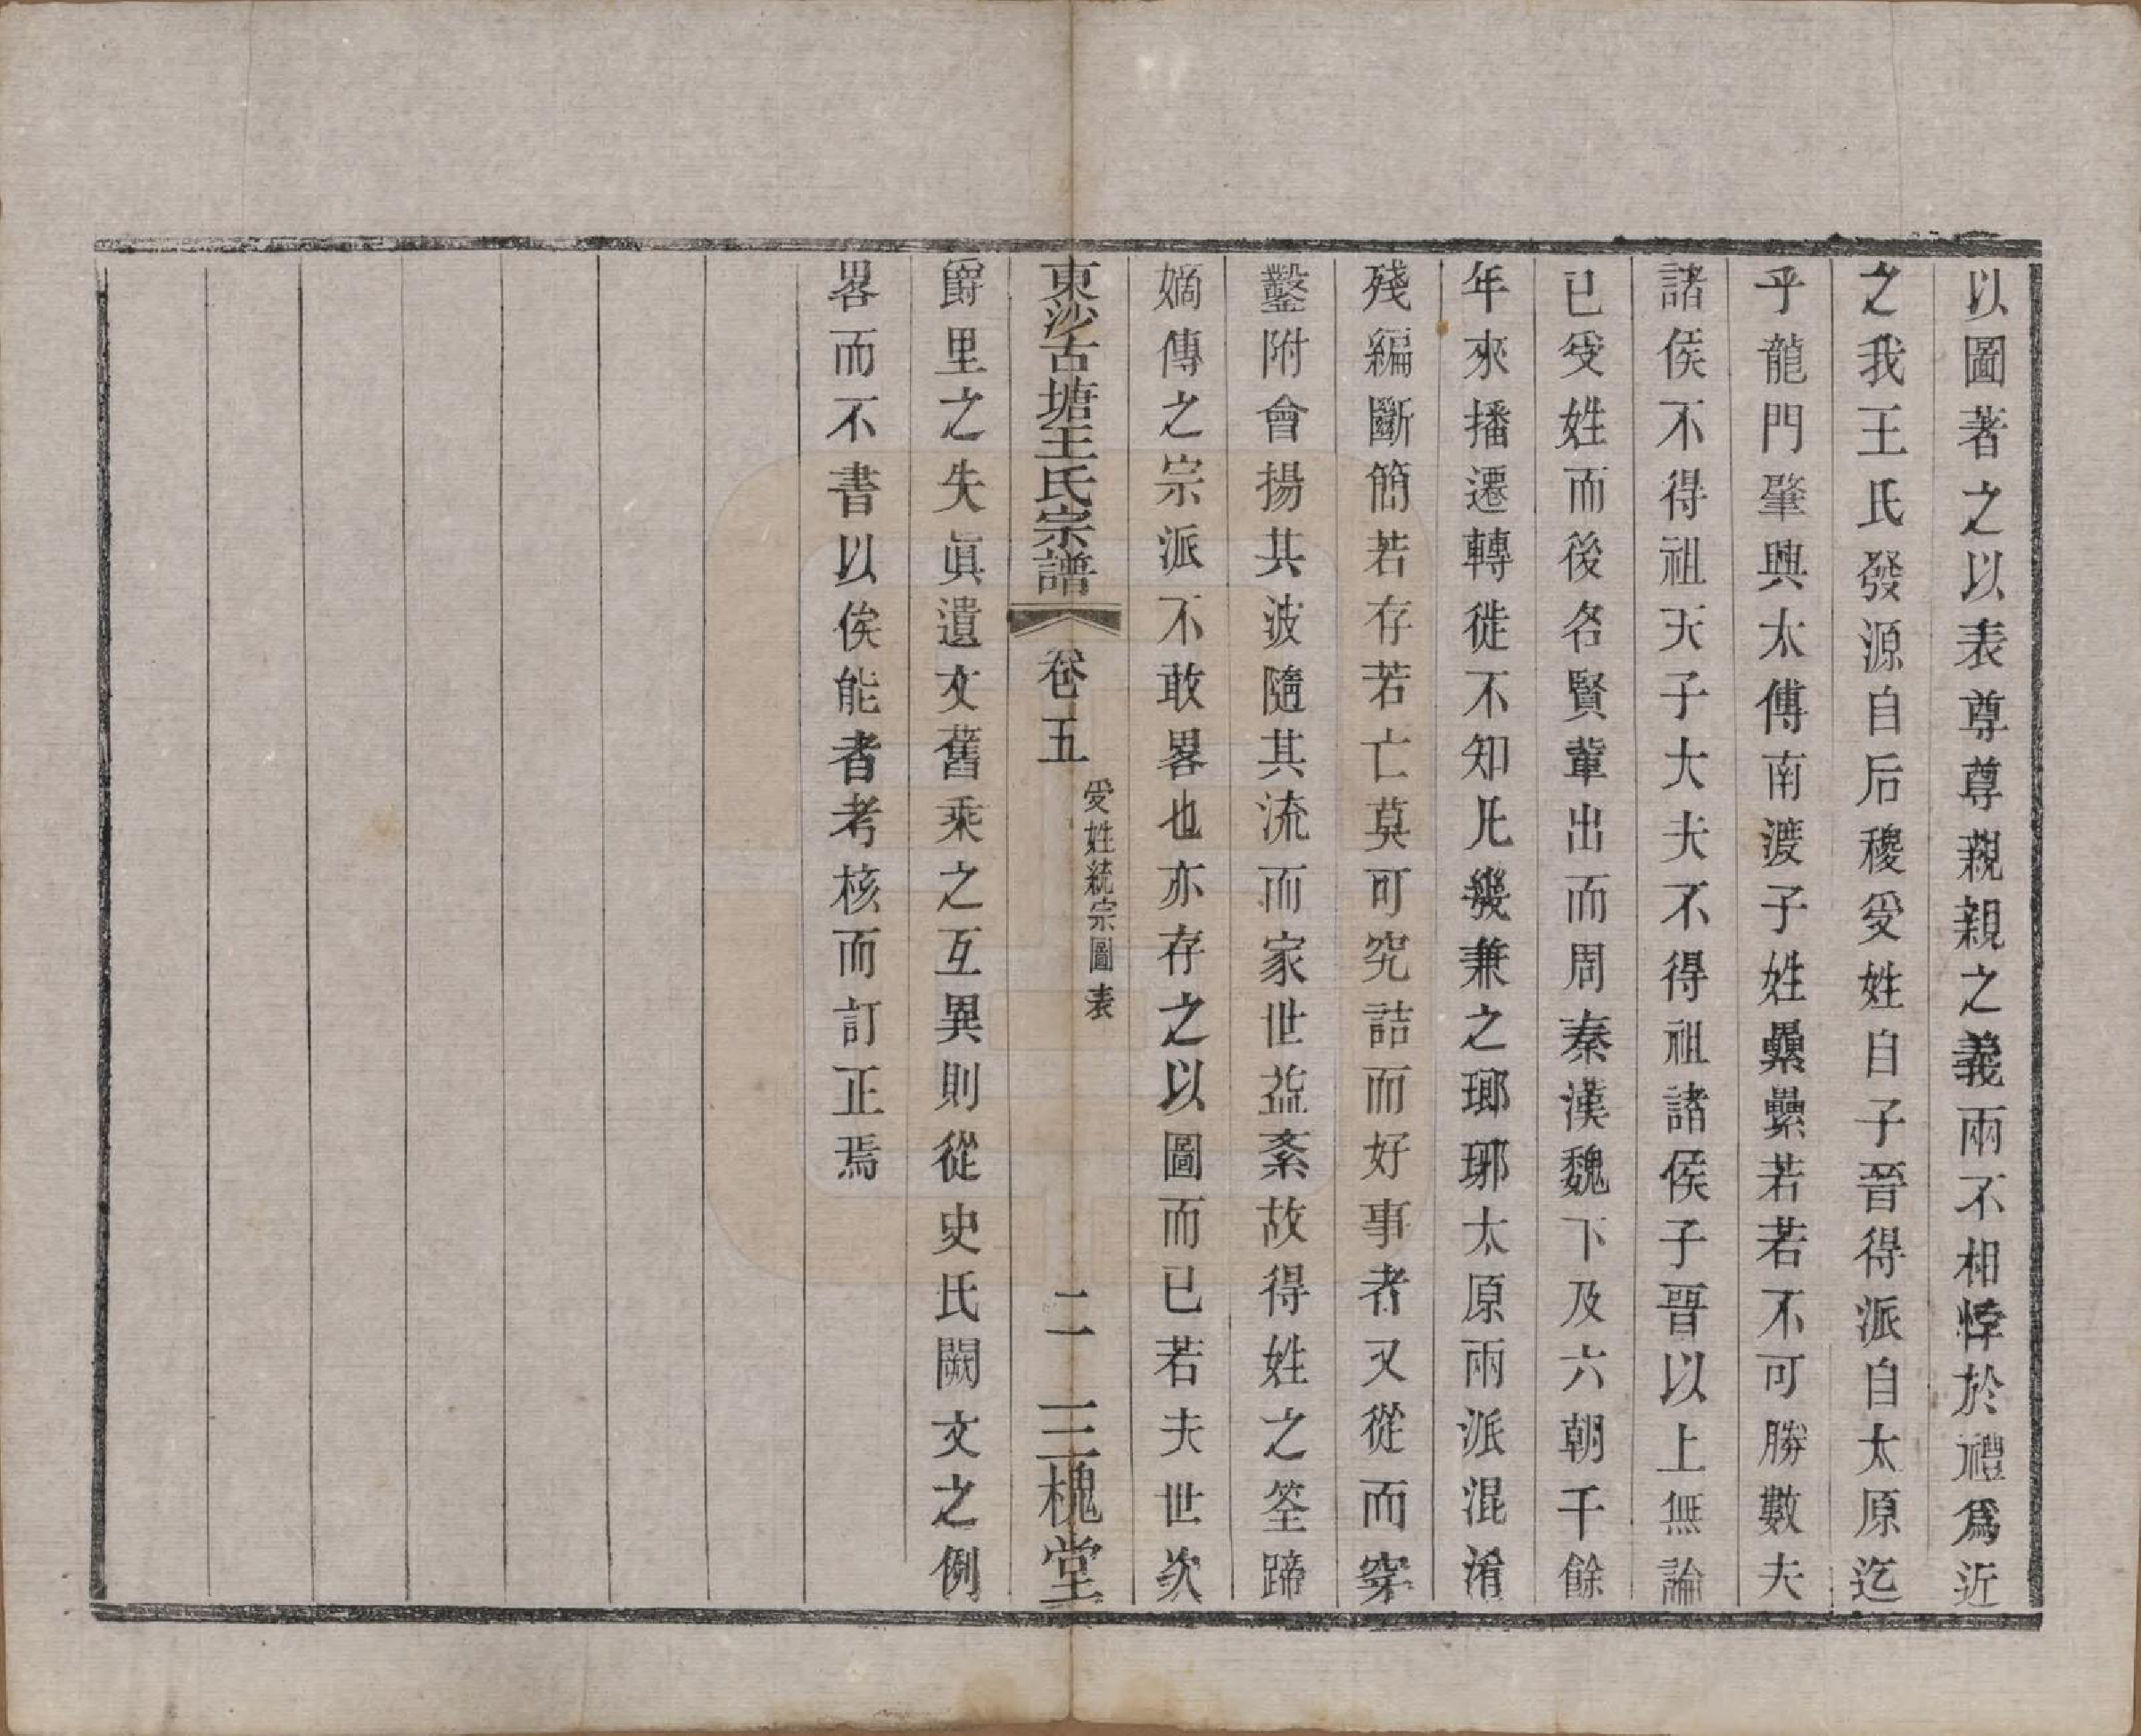 以圖著之以表尊尊親親之義兩不相悖於禮爲近
之我王氏發源自后稷受姓自子晉得派自太原迄
乎龍門肇興太傅南渡子姓纍纍若若不可勝數夫
諸侯不得祖天子大夫不得祖諸侯子晉以上無論
已受姓而後名賢輩出而周秦漢魏下及六朝千餘
年來播遷轉徙不知凡幾兼之瑯琊太原兩派混淆
殘編斷簡若存若亡莫可究詰而好事者又從而穿
鑿附會揚其波隨其流而家世益紊故得姓之筌蹄
嫡傳之宗派不敢畧也亦存之以圖而已若夫世次
東沙古塘王氏宗譜
卷五
受姓統宗圖表
二
三槐堂
爵里之失眞遺文舊乘之互異則從史氏闕文之例
畧而不書以俟能者考核而訂正焉